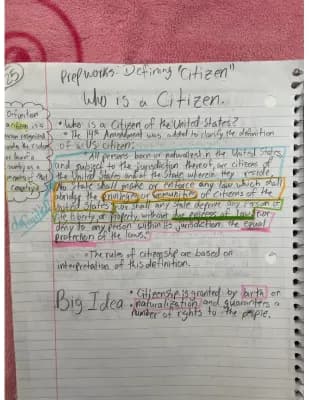 25
Prepworks- Defining "Citizen"
Who is a Citizen.
Definition
a citizen is a
person recognized
under the
country as a
country
• Who is a Citizen of the United States?
• The 14th Amendment was added to clarify the definition
of a U.S citizen:
"All persons born or naturalized in the United States,
and subject to the jurisdiction thereof, are citizens of
the United States and of the State wherein they reside.
No State shall make or enforce any law which shall
abridge the privileges or immunities of citizens of the
United States; nor shall any State deprive any person of
life, liberty, or property, without due process of law; nor
deny to any person within its jurisdiction the equal
protection of the laws."
• The rules of citizenship are based on
interpretation of this definition.
Big Idea
• Citizenship is granted by birth or
naturalization and guarantees a
number of rights to the people.